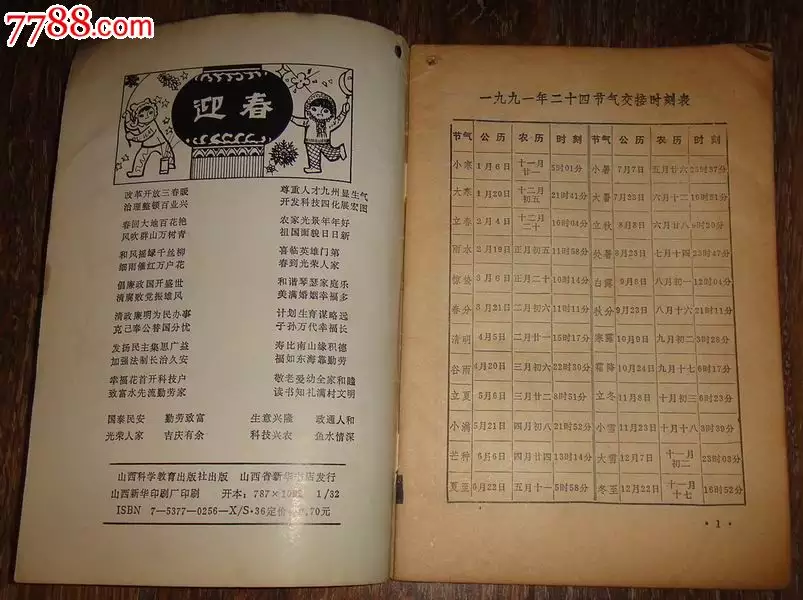 7788.com
迎春
改革开放三春暖 尊重人才九州显生气
治理整顿百业兴 开发科技四化展宏图
春回大地百花艳 农家光景年年好
风吹群山万树青 祖国面貌日日新
和风摇绿千丝柳 喜临英雄门第
细雨催红万户花 春到光荣人家
倡廉政国开盛世 和谐琴瑟家庭乐
清腐败党振雄风 美满婚姻幸福多
清政廉明为民办事 计划生育谋略远
克己奉公替国分忧 子孙万代幸福长
发扬民主集思广益 寿比南山缘积德
加强法制长治久安 福如东海靠勤劳
幸福花首开科技户 敬老爱幼全家和睦
致富水先流勤劳家 读书知礼满村文明
国泰民安 勤劳致富 生意兴隆 政通人和
光荣人家 吉庆有余 科技兴农 鱼水情深
山西科学教育出版社出版 山西省新华书店发行
山西新华印刷厂印刷 开本：787×1092 1/32
ISBN 7—5377—0256—X/S·36定价 0.70元
一九九一年二十四节气交接时刻表
节气 公历 农历 时刻 节气 公历 农历 时刻
小寒 1月6日 十一月廿一 5时01分 小暑 7月7日 五月廿六 23时37分
大寒 1月20日 十二月初五 21时41分 大暑 7月23日 六月十二 16时31分
立春 2月4日 十二月二十 16时04分 立秋 8月8日 六月廿八 9时20分
雨水 2月19日 正月初五 11时58分 处暑 8月23日 七月十四 23时47分
惊蛰 3月6日 正月二十 10时14分 白露 9月8日 八月初一 12时04分
春分 3月21日 二月初六 11时11分 秋分 9月23日 八月十六 21时11分
清明 4月5日 二月廿一 15时17分 寒露 10月9日 九月初二 3时26分
谷雨 4月20日 三月初六 22时30分 霜降 10月24日 九月十七 6时17分
立夏 5月6日 三月廿二 8时51分 立冬 11月8日 十月初三 6时23分
小满 5月21日 四月初八 21时52分 小雪 11月23日 十月十八 3时39分
芒种 6月6日 四月廿四 13时14分 大雪 12月7日 十一月初二 23时03分
夏至 6月22日 五月十一 5时58分 冬至 12月22日 十一月十七 16时52分
·1·